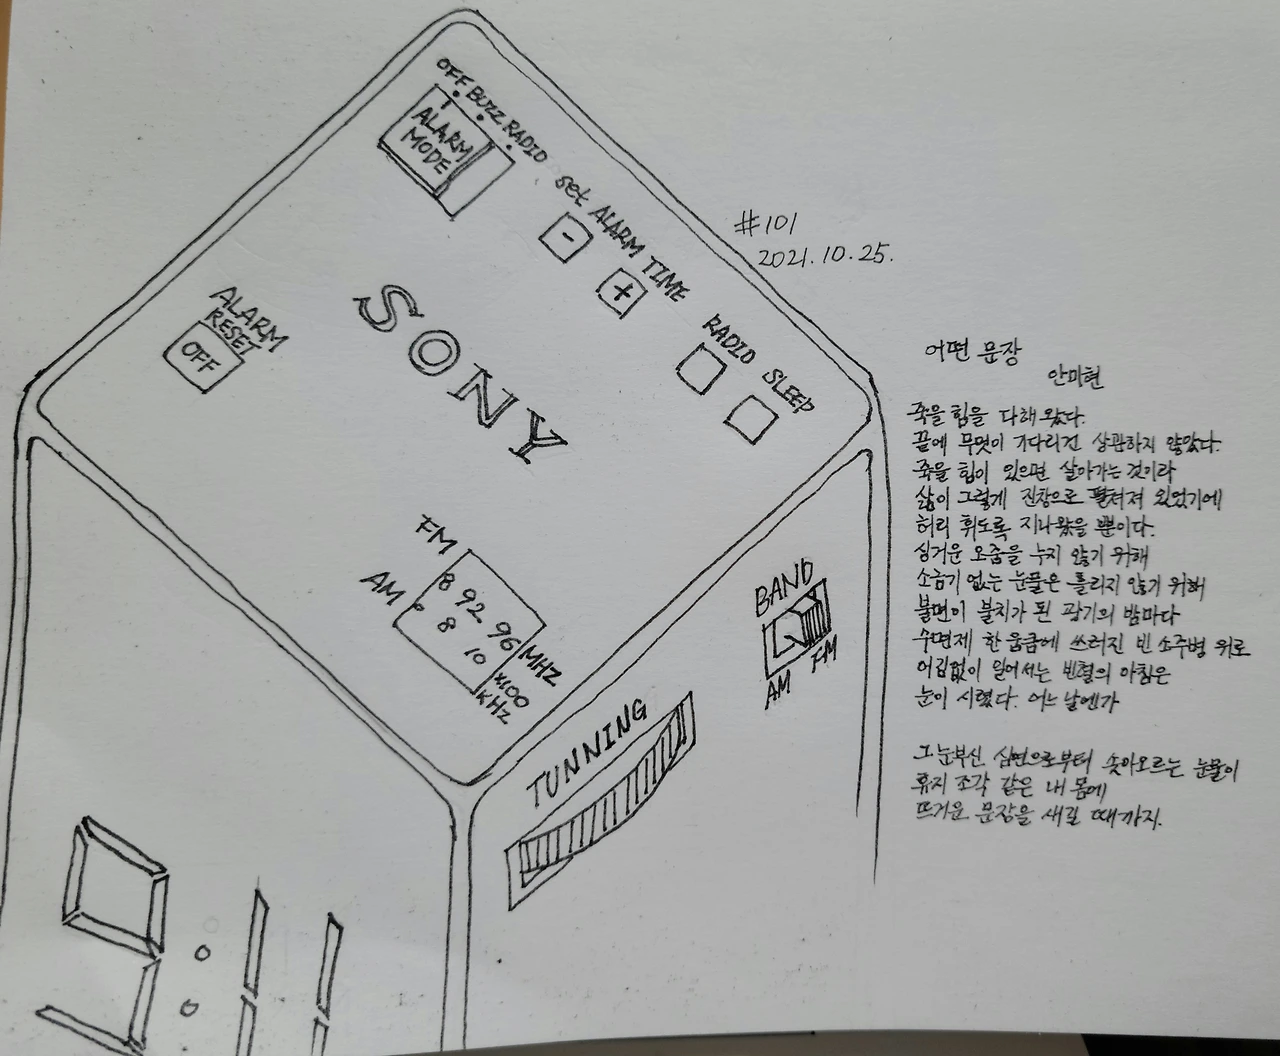 OFF BUZZ RADIO
ALARM
MODE
set ALARM TIME
-
+
RADIO SLEEP
ALARM
RESET
OFF
SONY
FM
8 92 96 MHZ
AM
8 10 x100
KHZ
BAND
AM FM
TUNNING
9:11
#101
2021.10.25.
어떤 문장
안미현
죽을 힘을 다해 왔다.
끝에 무엇이 기다리건 상관하지 않았다.
죽을 힘이 있으면 살아가는 것이라
삶이 그렇게 진창으로 펼쳐져 있었기에
허리 휘도록 지나왔을 뿐이다.
싱거운 오줌을 누지 않기 위해
소금기 없는 눈물은 흘리지 않기 위해
불면이 불치가 된 광기의 밤마다
수면제 한 움큼에 쓰러진 빈 소주병 위로
어김없이 일어서는 빈혈의 아침은
눈이 시렸다. 어느 날엔가
그 눈부신 심연으로부터 솟아오르는 눈물이
휴지 조각 같은 내 몸에
뜨거운 문장을 새길 때까지.